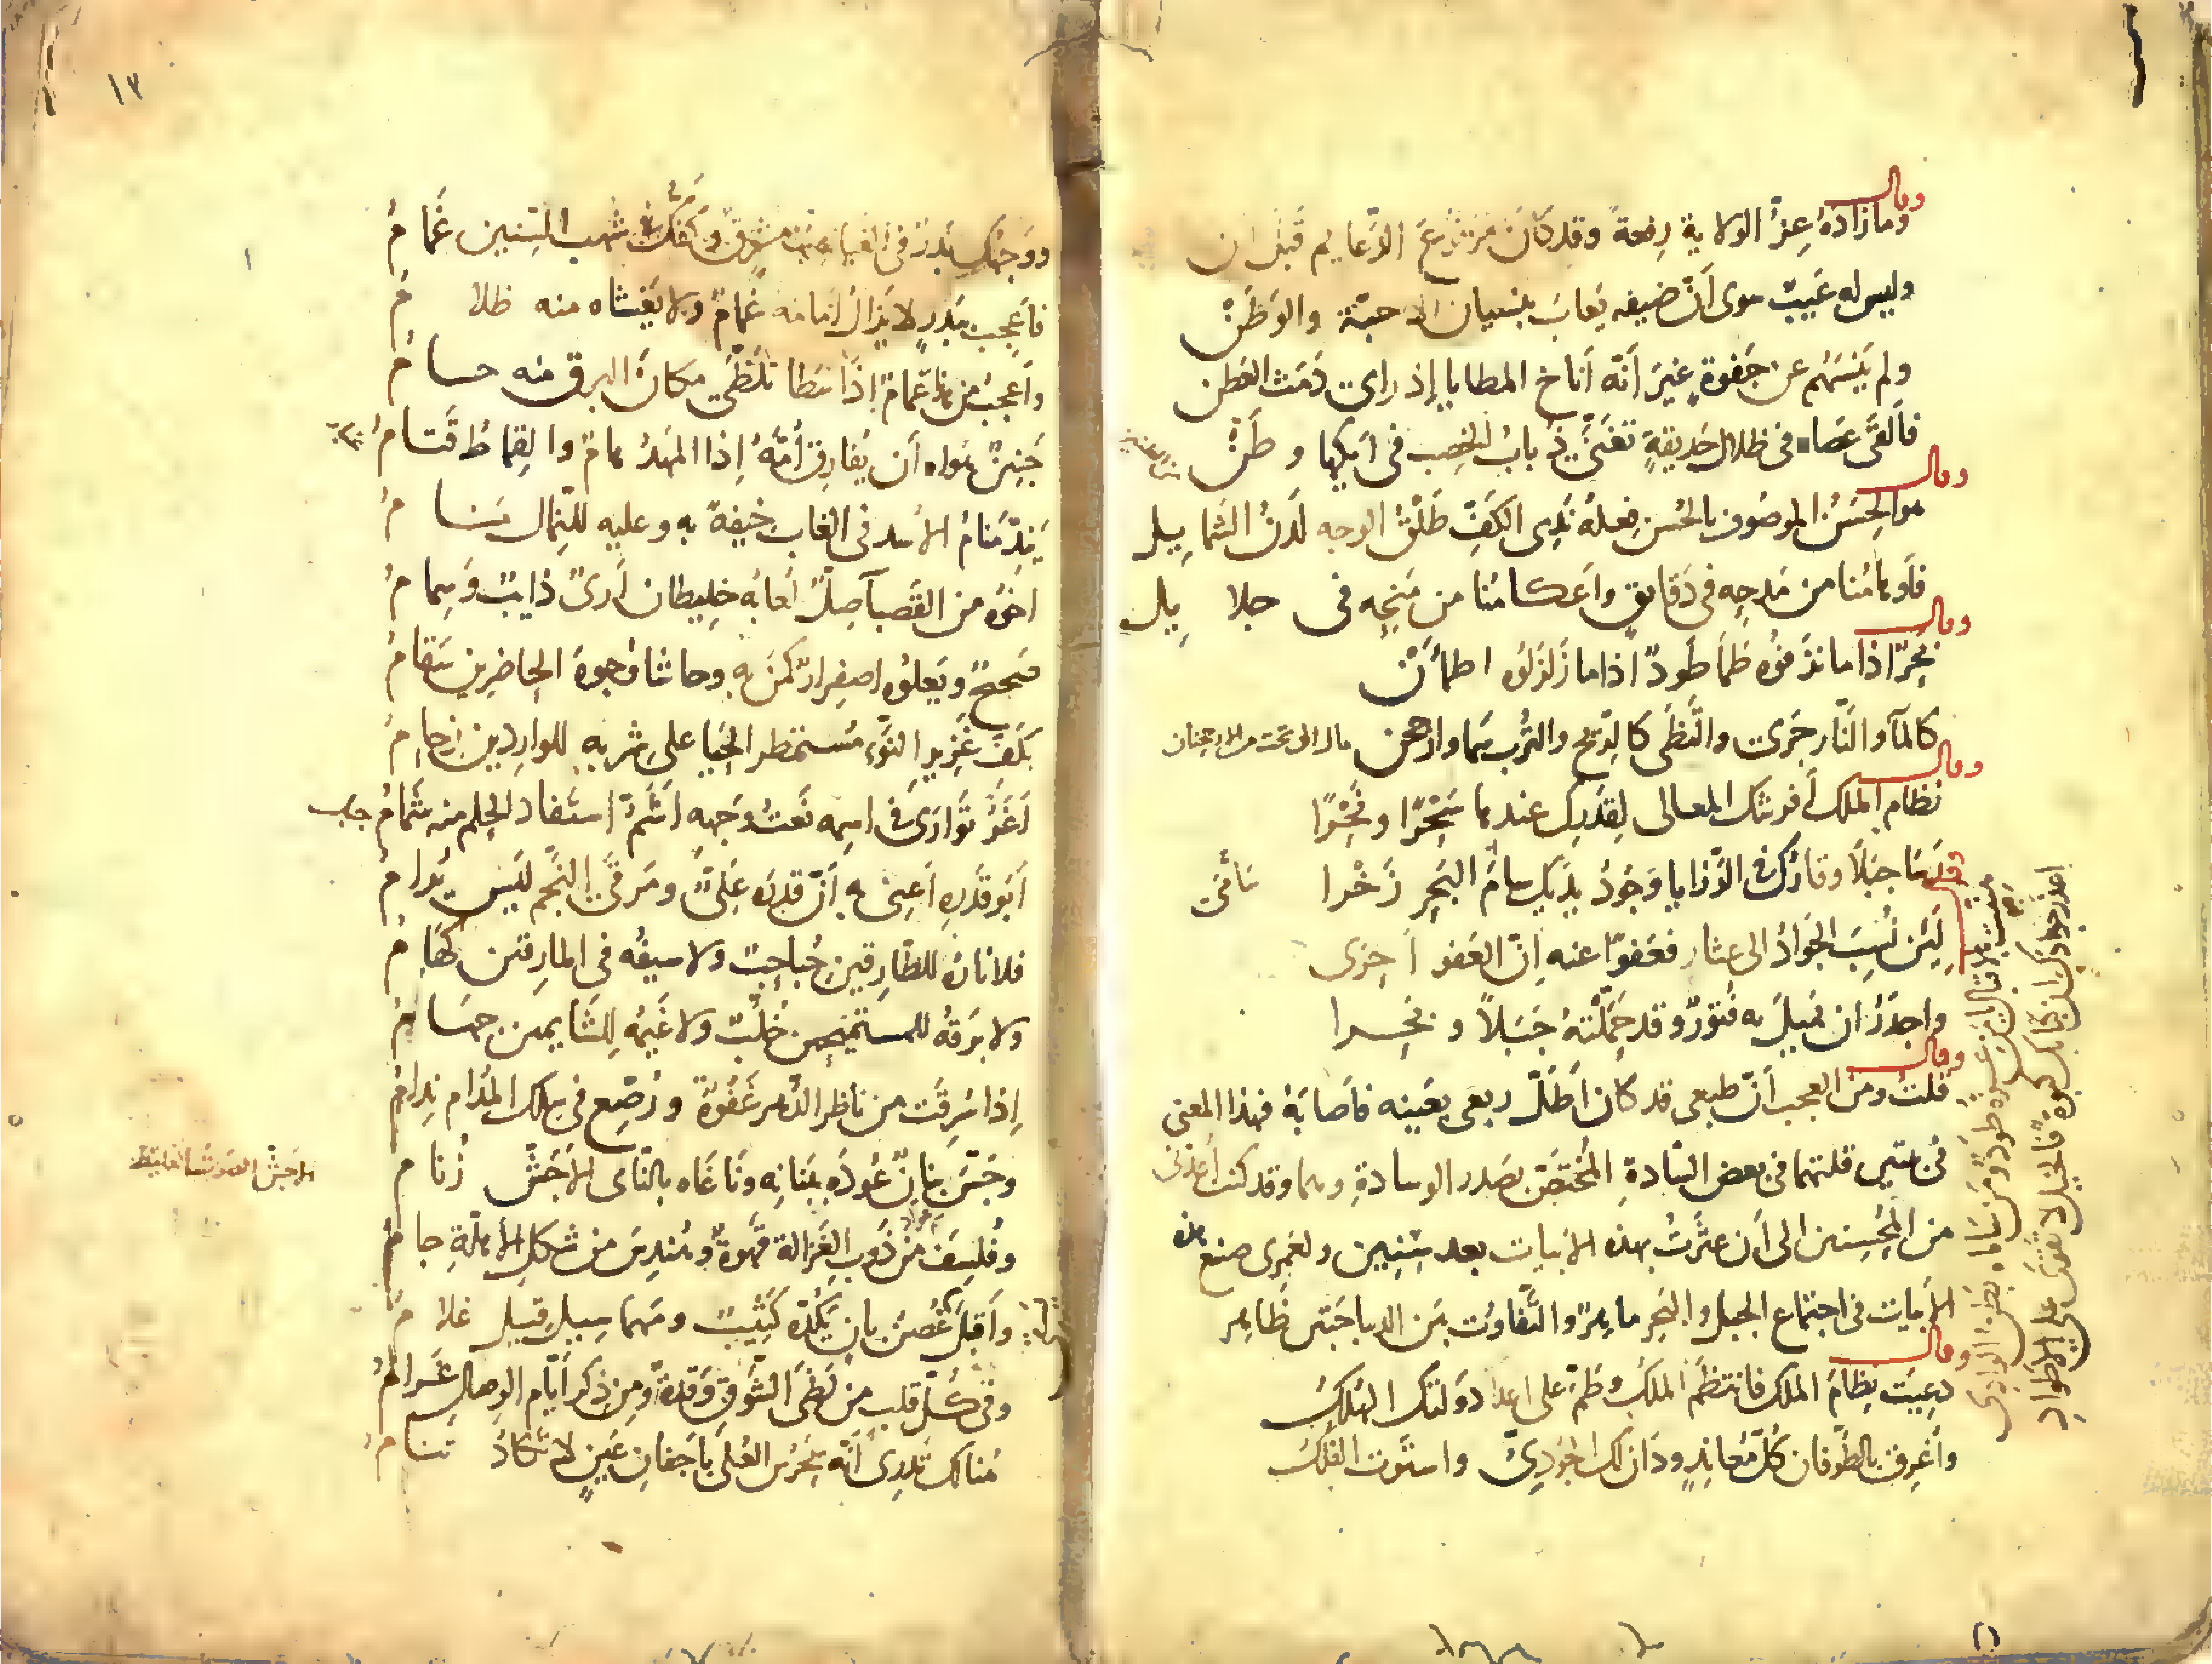 وقال
وما زاده عِزُّ الولاية رفعةً وقد كان مرتفع الدّعايم قبل ان
وليس له عَيبٌ سوى أنّ ضيفه يُعابَ بنسيان الاحبّة والوَطَنْ
ولم يَنسَهُم عن جَفوةٍ غيرَ أنّه أناخ المطايا إذ رأى دَمَث العَطن
فألقى عَصاه في ظلال حَديقةٍ تغنّى ذُبابُ الخِصب في أيكها وطَنّ
وقال
هو الحَسَنُ الموصوف بالحُسن فِعلهُ نَدِى الكفِّ طَلْقُ الوجه لَدْنُ الشمايل
فأوهامُنا من مَدحِه في دَقايق وأعكامُنا من مَنحِه في جلايل
وقال
بَحرٌ اذا ما نَزَفوه طَمَا طَودٌ اذا ما زَلزَلوه اطمأنّ
كالمآ والنّار جَرى والتَظَى كالرّيح والتُّرب سَما وارجحن
وقال
نظامَ الملك أفرشَك المعالى لِقَدرِك عندها سَحْرًا ونَحْرًا
ورَسَا جبلًا وقارُك في الرَّزايا وَجُودُ يدَيك سامَ البَحر زَخْرا
لَئِن نُسِبَ الجَوادُ الى عِثارٍ فعَفوًا عنه إنّ العَفو أحرى
واجدَرُ ان يَميلَ به فُتورٌ وقد حَمَّلْتَهُ جَبَلاً وبَحرا
وقال
قلتُ ومن العجب أنّ طبعى قد كان أطَلَّ ربعى بعَينه فأصابَهُ فهذا المعنى
في بيتين قلتهما في بعض السّادةِ المُختَصّين بصَدر الوسادةِ وهما وقد كنت أعُدّنى
من المُحسِنين الى أن عثَرتُ بهذه الأبيات بعد سِنِين ولعَمرى صنع هذه
الأبيات في اجتماع الجبل والبَحر ماهرٌ والتّفاوت بين الديباجتين ظاهر
وقال
دعِيتَ نِظامَ الملك فانتظَمَ الملكُ وطَمَّ على اعدآ دَولتك الهُلكُ
وأُغرِق بالطّوفان كُلُّ مُعاندٍ ودَانَ لك الجُودِىُّ واستَوت الفُلكُ
احذر جوادك ان كبا بك كبوةً فالخيل لا تقوَى على الأطواد
١٣
ووجهُك بَدرٌ في الغياهب مشرقٌ وكفّك في شهب السّنين غَمامُ
فأعجِب ببَدرٍ لا يزال أمامه غَمامٌ ولا يَغشاه منه ظلامُ
وأعجبُ من هذا غَمامٌ إذا سَطا تَلَظَّى مكانَ البرق منه حسامُ
جَنينٌ هَواه أن يُفارِق أُمَّهُ إذا المَهدُ هامٌ والقِماطُ قَتامُ
يَنِدّ مَنامُ الأسد في الغاب خيفةً به وعليه للنِّمال مَنامُ
اخوه من القَصبآ صِلٌّ لُعابُه خليطان أرىٌ ذايبٌ وسِمامُ
صَحيحٌ ويَعلوه اصفِرارٌ كمَن به وحاشا وُجوهَ الحاضِرين سَقامُ
بكفِّ غَزيرِ النَّوء مُستمطَر الحَيا على شربه للواردين زِحامُ
أغَرُّ تَوارَى في اسمه نَعتُ وَجهِه أشَمُّ استَفاد الحِلم منه شَمامُ جبل
أبَو قَدرِه أعنى به أنّ قَدرَه عَلِىٌّ ومَرقَى النَّجم لَيس يُرامُ
فلا نارُه للطّارِقين حُباحِبٌ ولا سيفُه في المارِقين كَهامُ
ولا بَرقُه للمستمنِحين خُلَّبٌ ولا غَيمُه لِلشّايمين جَهامُ
إذا سُرِقَت من ناظر الدَّهر غَفوةٌ ورُصّع في سِلك المُدام نِدامُ
وجَسّ بنانٌ عُودَه ببَنانِه وناغاه بالنّاى الأجَشّ زُنامُ
الأجشّ الصَوت الغليظ
وقُلِسَف من ذَوب الغَزالة قهوةٌ وهُندِس من شكل الأهلّةِ جامُ
وأقبَلَ غُصنُ بانٍ يَكُدّه كَثيبٌ ومَهما سِيل قيل غلامُ
وفي كُلّ قلب من لَظَى الشّوق وَقدةٌ ومِن ذِكر أيّام الوِصال غَرامُ
هُنالك تَدرى أنّه يَحرُس العُلَى بأجفانِ عَينٍ لا تَكادُ تنامُ